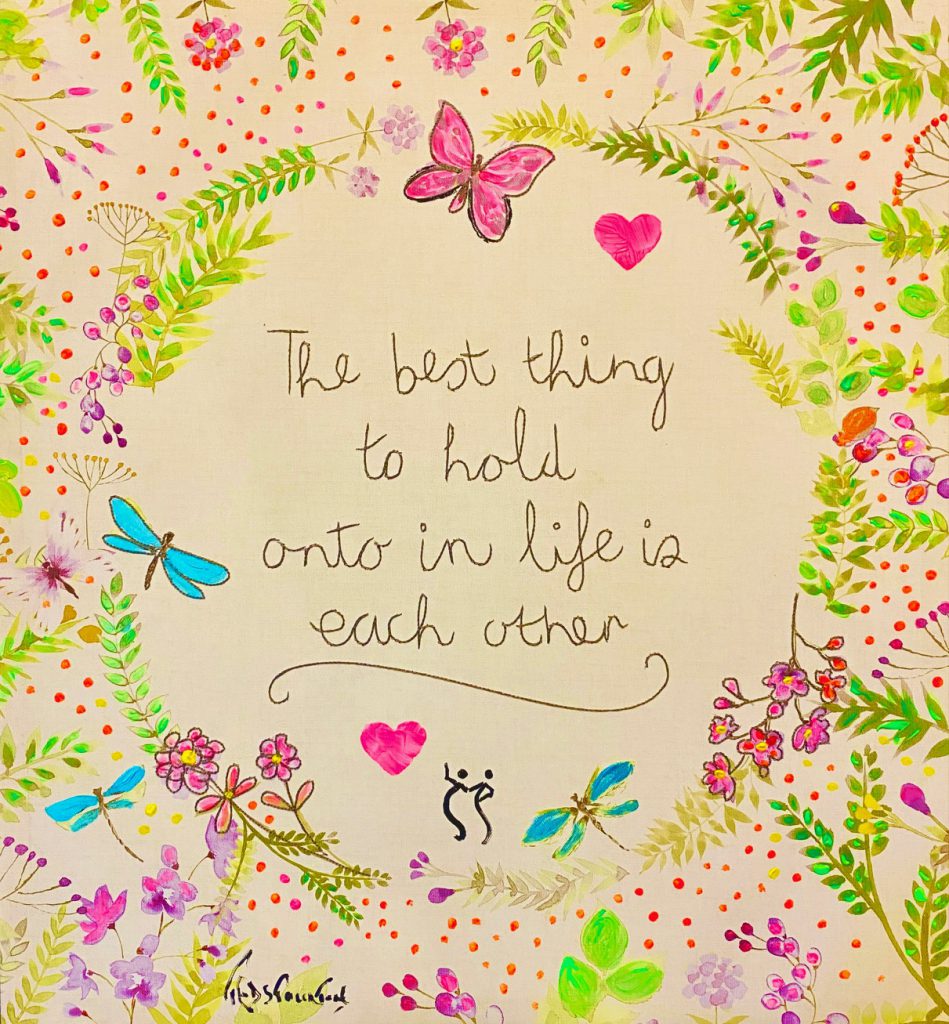 The best thing
to hold
onto in life is
each other